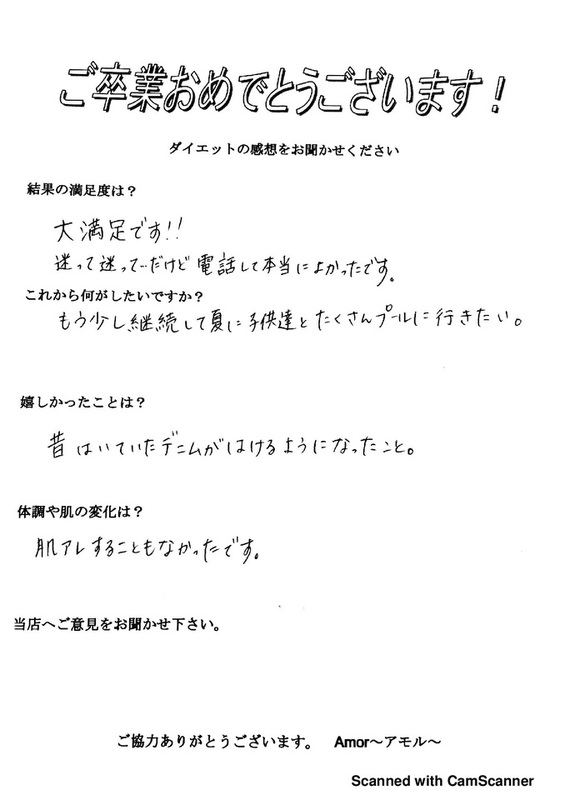 ご卒業おめでとうございます！
ダイエットの感想をお聞かせください
結果の満足度は？
大満足です!!
迷って迷って…だけど電話して本当によかったです。
これから何がしたいですか？
もう少し継続して夏に子供達とたくさんプールに行きたい。
嬉しかったことは？
昔はいていたデニムがはけるようになったこと。
体調や肌の変化は？
肌アレすることもなかったです。
当店へご意見をお聞かせ下さい。
ご協力ありがとうございます。　Amor～アモル～
Scanned with CamScanner